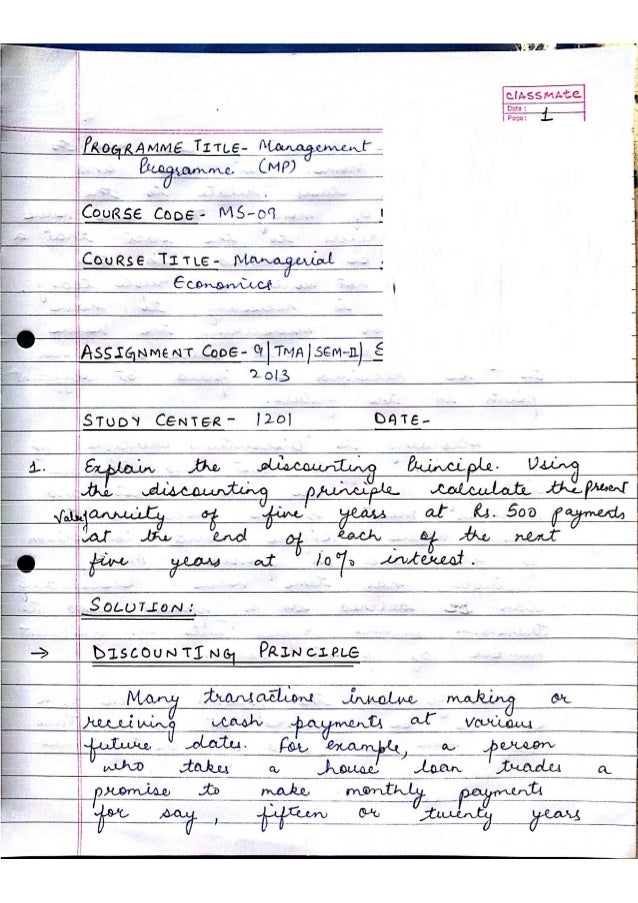 classmate
Date :
Page: 1
PROGRAMME TITLE- Management
Programme (MP)
COURSE CODE- MS-09
COURSE TITLE- Managerial
Economics
ASSIGNMENT CODE- 9|TMA|SEM-II|
2013
STUDY CENTER- 1201 DATE-
1. Explain the discounting Principle. Using
the discounting principle calculate the present
value annuity of five years at Rs. 500 payments
at the end of each of the next
five years at 10% interest.
SOLUTION:
→ DISCOUNTING PRINCIPLE
Many transactions involve making or
receiving cash payments at various
future dates. For example, a person
who takes a house loan trades a
promise to make monthly payments
for say, fifteen or twenty years